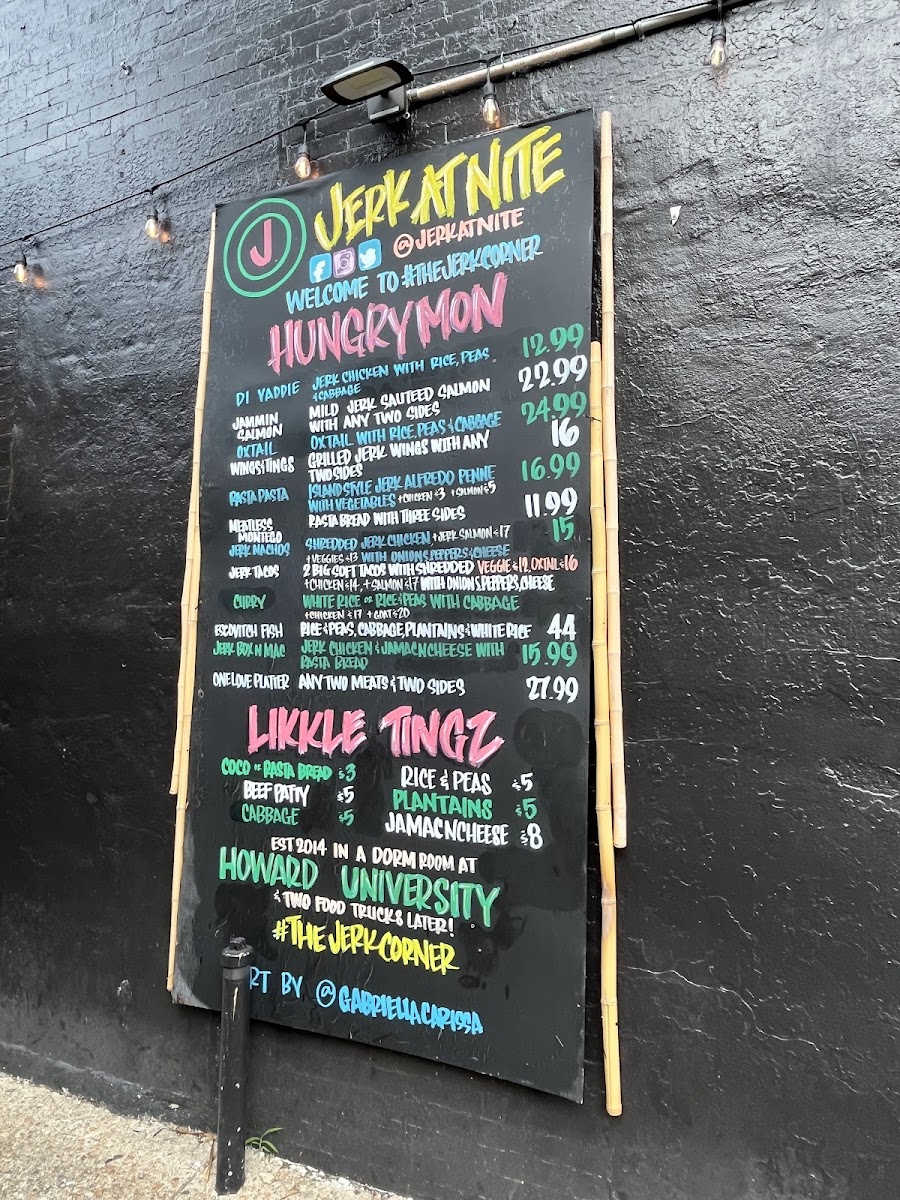 J
JERK AT NITE
@JERKATNITE
WELCOME TO #THEJERKCORNER
HUNGRY MON
DI YADDIE JERK CHICKEN WITH RICE, PEAS & CABBAGE 12.99
JAMMIN SALMON MILD JERK SAUTEED SALMON WITH ANY TWO SIDES 22.99
OXTAIL OXTAIL WITH RICE, PEAS & CABBAGE 24.99
WINGS&TINGS GRILLED JERK WINGS WITH ANY TWO SIDES 16
RASTA PASTA ISLAND STYLE JERK ALFREDO PENNE WITH VEGETABLES +CHICKEN $3 +SALMON $5 16.99
MEATLESS MONTEGO RASTA BREAD WITH THREE SIDES 11.99
JERK NACHOS SHREDDED JERK CHICKEN, +JERK SALMON $17 15
+VEGGIES $13 WITH ONIONS, PEPPERS, & CHEESE
JERK TACOS 2 BIG SOFT TACOS WITH SHREDDED VEGGIE $12, OXTAIL $16
+CHICKEN $14, +SALMON $17 WITH ONIONS, PEPPERS, CHEESE
CURRY WHITE RICE OR RICE & PEAS WITH CABBAGE
+CHICKEN $17 +GOAT $20
ESCOVITCH FISH RICE & PEAS, CABBAGE, PLANTAINS & WHITE RICE 44
JERK BOX N MAC JERK CHICKEN & JAMACNCHEESE WITH RASTA BREAD 15.99
ONE LOVE PLATTER ANY TWO MEATS & TWO SIDES 27.99
LIKKLE TINGZ
COCO OR RASTA BREAD $3
RICE & PEAS $5
BEEF PATTY $5
PLANTAINS $5
CABBAGE $5
JAMACNCHEESE $8
EST 2014 IN A DORM ROOM AT
HOWARD UNIVERSITY
& TWO FOOD TRUCKS LATER!
#THEJERKCORNER
RT BY @GABRIELLACARISSA